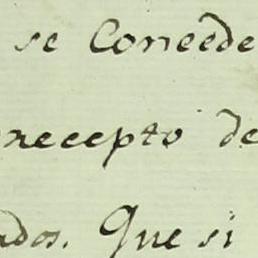 se Concede
excepto de
ados. Que si